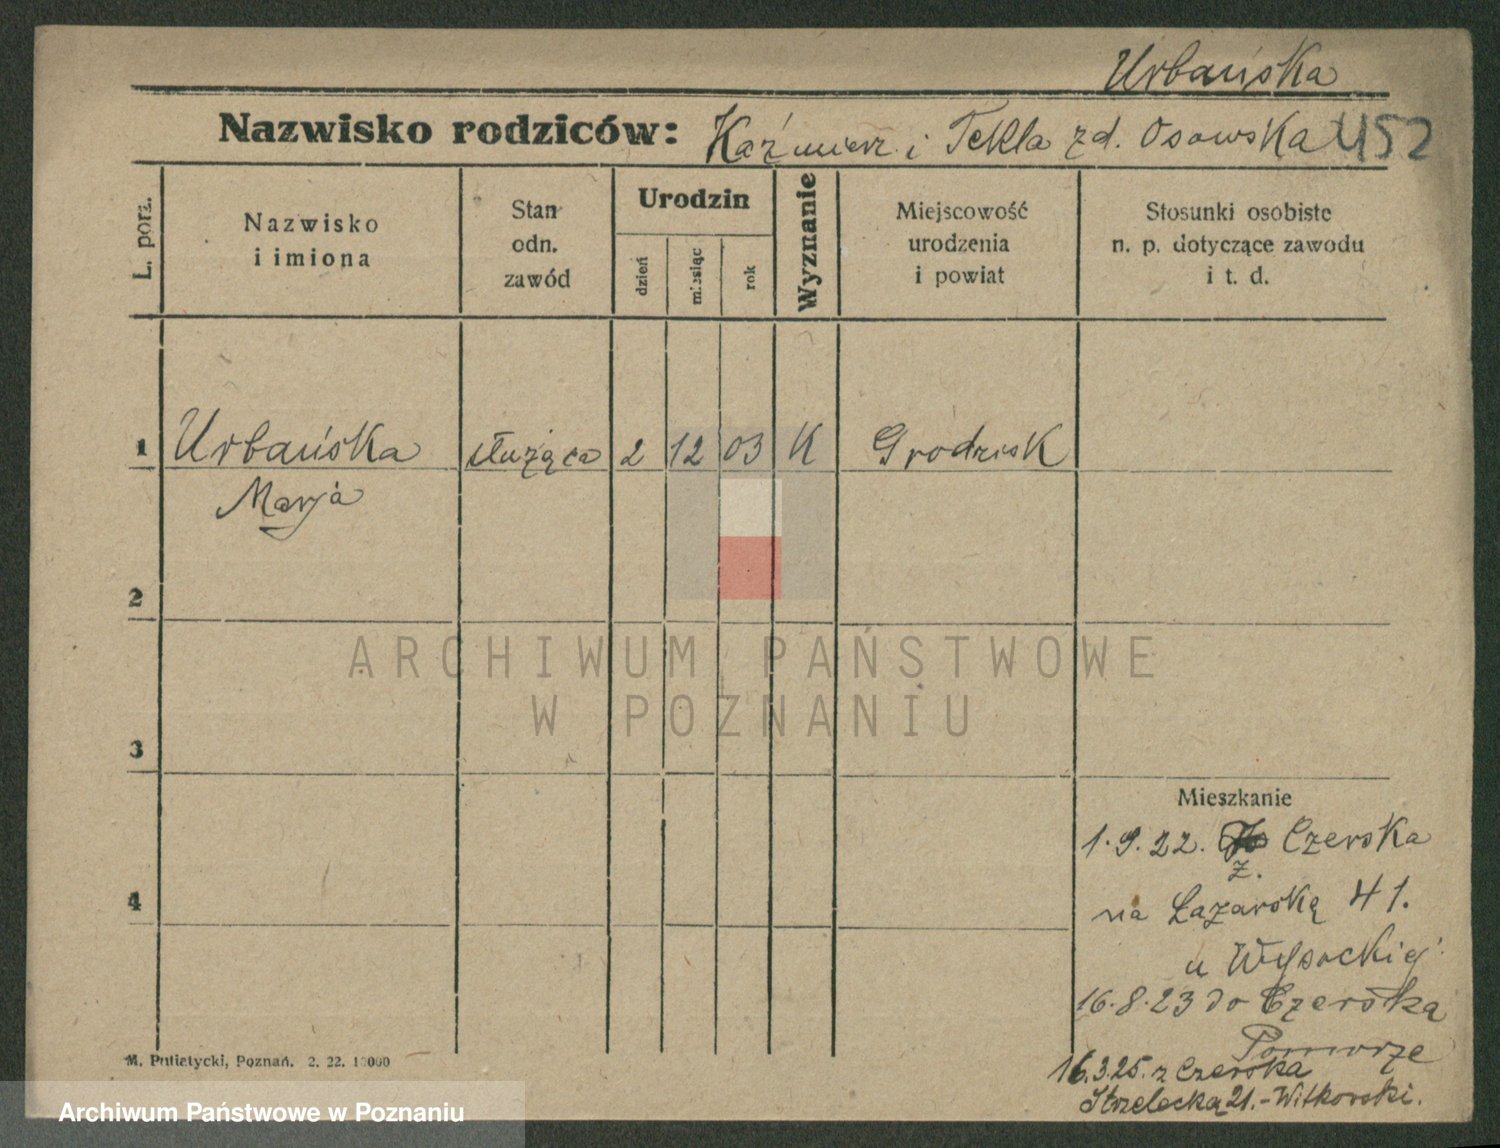 Urbańska
Nazwisko rodziców: Kaźmierz i Tekla zd. Osowska 452
L. porz.
Nazwisko
i imiona
Stan
odn.
zawód
Urodzin
dzień
miesiąc
rok
Wyznanie
Miejscowość
urodzenia
i powiat
Stosunki osobiste
n. p. dotyczące zawodu
i t. d.
1 Urbańska służąca 2 12 03 K Grodzisk
Marja
2
3
4
Mieszkanie
1.9.22. Czerska
z.
na Łazarską 41.
u Wysockiej
16.8.23 do Czerska
Pomorze
16.3.25. z Czerska
Strzelecka 21.-Witkowski.
M. Putiatycki, Poznań. 2. 22. 10000
ARCHIWUM PAŃSTWOWE
W POZNANIU
Archiwum Państwowe w Poznaniu